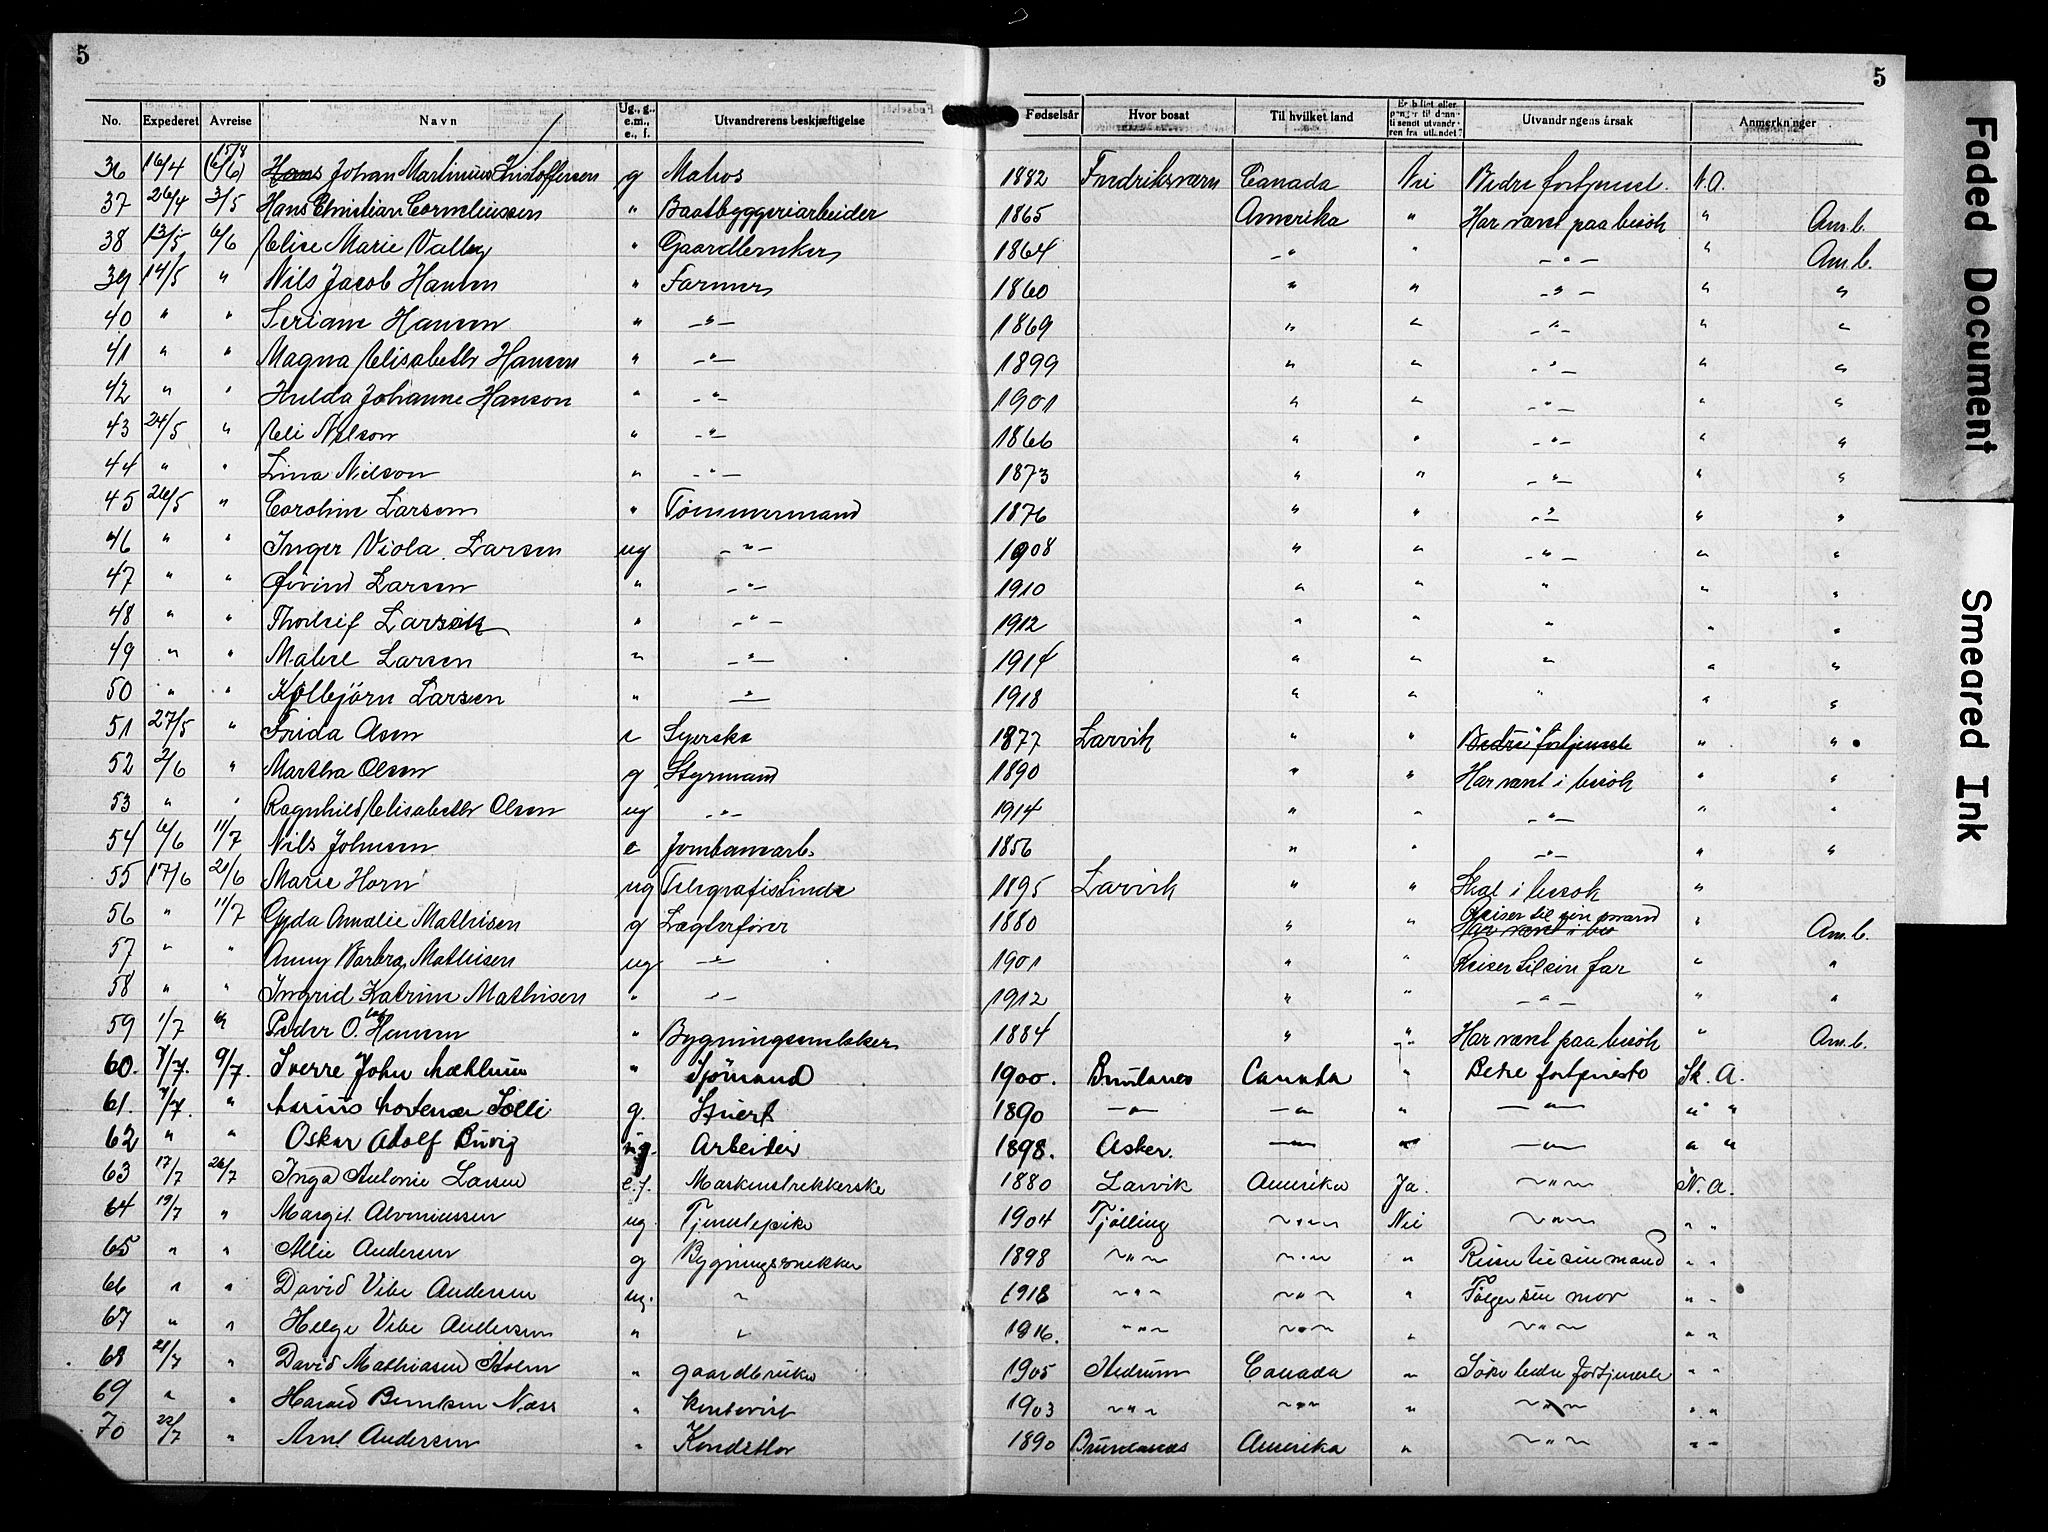 5
5
No. Expederet Avreise Navn Ug., g., e.m., e., f. Utvandrerens beskjæftigelse Fødselsår Hvor bosat Til hvilket land Er billet eller penger til denne tilsendt utvandreren fra utlandet? Utvandringens årsak Anmerkninger
36 16/4 15/8 (6/6) Hans Johan Martinius Kristoffersen g Matros 1882 Fredriksværn Canada Nei Bedre fortjenest. N.A.
37 26/4 3/5 Hans Christian Corneliussen " Baatbyggeriarbeider 1865 Amerika " Har været paa besøk " Am.b.
38 13/5 6/6 Elise Marie Valley " Gaardbruker 1864 -"- " -"- " Am.b.
39 14/5 " Nils Jacob Hansen " Farmer 1860 " " -"- " "
40 " " Seriane Hansen " -"- 1869 " " -"- " "
41 " " Magna Elisabeth Hansen " -"- 1899 " " -"- " "
42 " " Hulda Johanne Hanson " -"- 1901 " " -"- " "
43 24/5 " Eli Nelson " -"- 1866 " " -"- " "
44 " " Lina Nelson " -"- 1873 " " -"- " "
45 26/5 " Caroline Larsen " Tømmermand 1876 " " -"- " "
46 " " Inger Viola Larsen ug -"- 1908 " " -"- " "
47 " " Øivind Larsen " -"- 1910 " " " " "
48 " " Thorleif Larsen " -"- 1912 " " " " "
49 " " Larsen " -"- 1914 " " " " "
50 " " Kolbjørn Larsen " -"- 1918 " " " " "
51 27/5 " Frida Olsen e Syerske 1877 Larvik " " Bedre fortjeneste " "
52 2/6 " Martha Olsen g Styrmand 1890 " " Har været i besøk " "
53 " " Ragnhild Elisabeth Olsen ug -"- 1914 " " -"- " "
54 6/6 11/7 Nils Johnsen e Jernbanearb. 1856 " " -"- " "
55 17/6 21/6 Marie Horn ug Telegrafistinde 1895 Larvik " " Skal i besøk "
56 " 11/7 Gyda Amalie Mathisen g Lægterfører 1880 " " Reiser til sin mand Har været i bes " Am.b.
57 " " Anny Barbra Mathisen ug -"- 1901 " " Reiser til sin far " "
58 " " Ingrid Katrine Mathisen " -"- 1912 " " -"- " "
59 1/7 " Peder O. Hansen " Bygningssnekker 1884 " " Har været paa besøk " Am.b.
60. 7/7. 9/7. Sverre John " Sjömand 1900. Brunlanes Canada " Bedre fortjeneste Sk. A.
61. 7/7. " Solli g. Stuert 1890 -"- -"- " -"- " "
62 " " Oskar Adolf Buvig ug. Arbeider 1898. Asker. -"- " -"- " "
63 17/7 26/7 Inga Antonie Larsen e.f. Maskinstrikkerske 1880 Larvik Amerika Ja. -"- N.A.
64 19/7 " Margit ug. Tjenestepike 1904 Tjölling -"- Nei -"- " "
65 " " Andersen g Bygningssnekker 1898 -"- -"- " Reise til sin mand " "
66 " " David Vibe Andersen ug. " 1918 -"- -"- " Følger sin mor " "
67 " " Helge Vibe Andersen " " 1916. -"- -"- " -"- " "
68 21/7 " David Mathiasen Holm " gaardbruker 1905 Hedrum Canada " Söke bedre fortjeneste " "
69 " " Harald Berntsen Næss " 1903 -"- -"- " -"- " "
70 22/7 " Arnt Andersen " Konditor 1890 Brunlanes Amerika " -"- " "
Faded Document
Smeared Ink